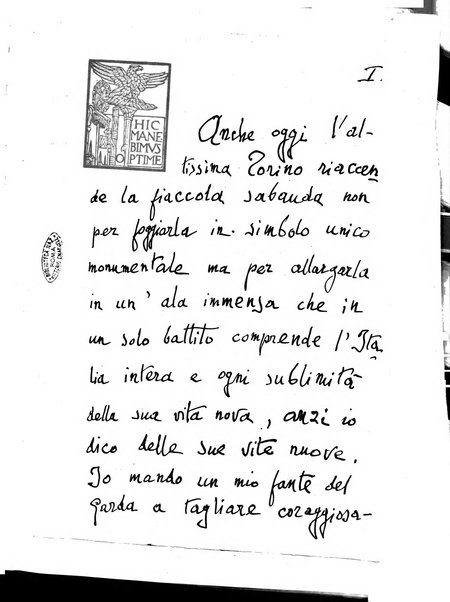 I.
HIC
MANE
BIMVS
OPTIME
Anche oggi l'al-
tissima Torino riaccen
de la fiaccola sabauda non
per foggiarla in simbolo unico
monumentale ma per allargarla
in un' ala immensa che in
un solo battito comprende l'Ita
lia intera e ogni sublimità
della sua vita nova, anzi io
dico delle sue vite nuove.
Io mando un mio fante del
Garda a tagliare coraggiosa-